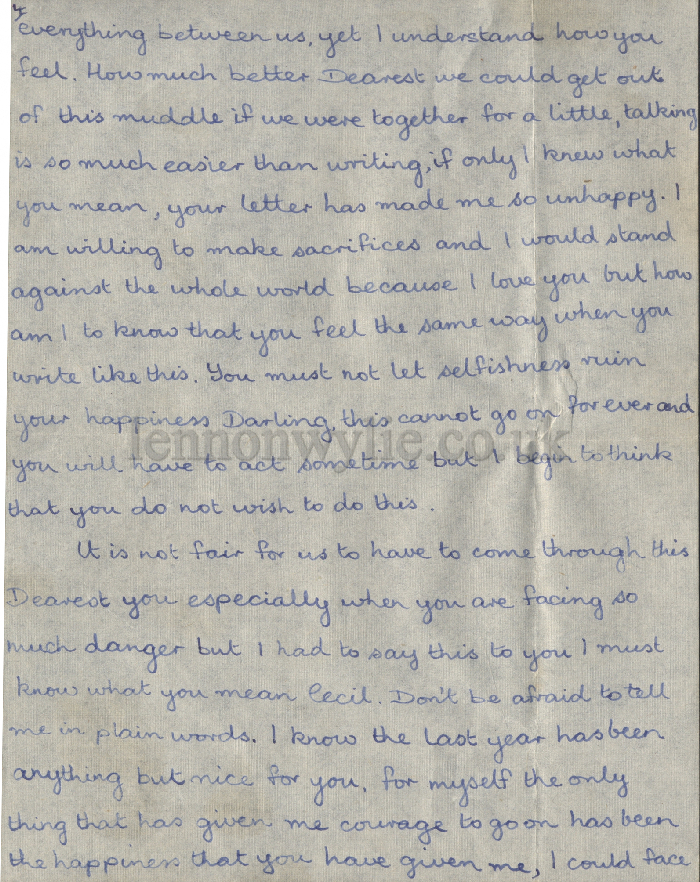 4
everything between us, yet I understand how you
feel. How much better Dearest we could get out
of this muddle if we were together for a little, talking
is so much easier than writing, if only I knew what
you mean, your letter has made me so unhappy. I
am willing to make sacrifices and I would stand
against the whole world because I love you but how
am I to know that you feel the same way when you
write like this. You must not let selfishness ruin
your happiness Darling, this cannot go on for ever and
lennonwylie.co.uk
you will have to act sometime but I begin to think
that you do not wish to do this.
It is not fair for us to have to come through this
Dearest you especially when you are facing so
much danger but I had to say this to you I must
know what you mean Cecil. Don't be afraid to tell
me in plain words. I know the last year has been
anything but nice for you, for myself the only
thing that has given me courage to go on has been
the happiness that you have given me, I could face